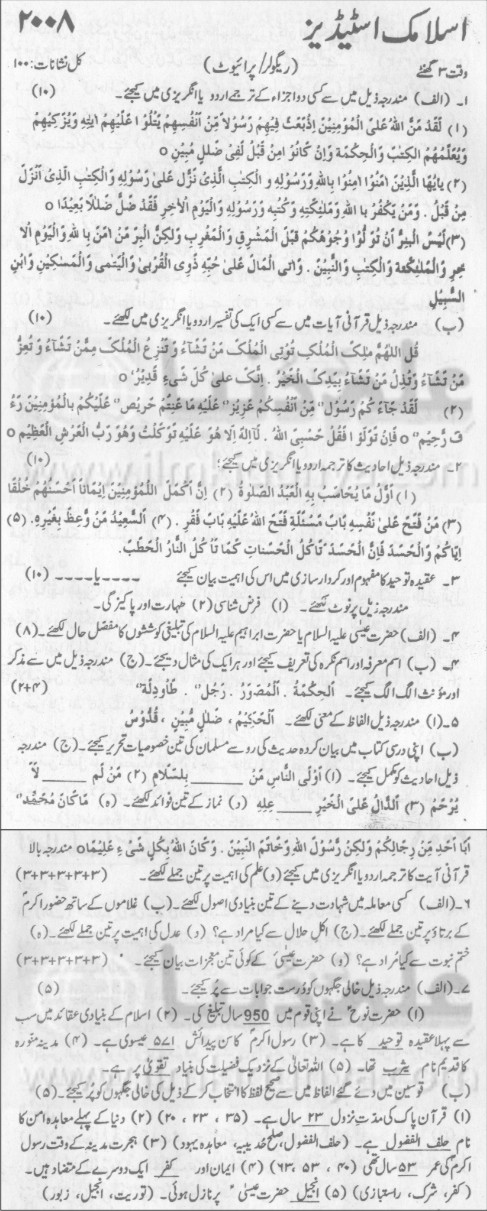 اسلامک اسٹیڈیز ۲۰۰۸
وقت ۳ گھنٹے (ریگولر/ پرائیوٹ) کل نشانات: ۱۰۰
۱۔ (الف) مندرجہ ذیل میں سے کسی دو اجزاء کے ترجمے اردو یا انگریزی میں کیجئے۔ (۱۰)
(۱) لَقَدْ مَنَّ اللهُ عَلَى الْمُؤْمِنِيْنَ اِذْبَعَثَ فِيْهِمْ رَسُوْلًا مِّنْ اَنْفُسِهِمْ يَتْلُوْا عَلَيْهِمْ اٰيٰتِهٖ وَيُزَكِّيْهِمْ
وَيُعَلِّمُهُمُ الْكِتٰبَ وَالْحِكْمَةَ وَاِنْ كَانُوْا مِنْ قَبْلُ لَفِيْ ضَلٰلٍ مُّبِيْنٍ ٥
(۲) يٰاَيُّهَا الَّذِيْنَ اٰمَنُوْا اٰمِنُوْا بِاللهِ وَرَسُوْلِهٖ وَ الْكِتٰبِ الَّذِيْ نَزَّلَ عَلٰى رَسُوْلِهٖ وَالْكِتٰبِ الَّذِيْ اَنْزَلَ
مِنْ قَبْلُ . وَمَنْ يَكْفُرْ بِا اللهِ وَمَلٰئِكَتِهٖ وَكُتُبِهٖ وَرَسُوْلِهٖ وَالْيَوْمِ الْاٰخِرِ فَقَدْ ضَلَّ ضَلٰلًا بَعِيْدًا ٥
(۳) لَيْسَ الْبِرَّ اَنْ تُوَلُّوْا وُجُوْهَكُمْ قِبَلَ الْمَشْرِقِ وَالْمَغْرِبِ وَلٰكِنَّ الْبِرَّ مَنْ اٰمَنَ بِا للهِ وَالْيَوْمِ الْاٰ
خِرِ وَالْمَلٰئِكَةِ وَالْكِتٰبِ وَالنَّبِيّٖنَ . وَاٰتَى الْمَالَ عَلٰى حُبِّهٖ ذَوِى الْقُرْبٰى وَالْيَتٰمٰى وَالْمَسٰكِيْنَ وَابْنَ
السَّبِيْلِ
(ب) مندرجہ ذیل قرآنی آیات میں سے کسی ایک کی تفسیر اردو یا انگریزی میں لکھئے۔ (۱۰)
قُلِ اللّٰهُمَّ مٰلِكَ الْمُلْكِ تُؤْتِى الْمُلْكَ مَنْ تَشَآءُ وَ تَنْزِعُ الْمُلْكَ مِمَّنْ تَشَآءُ وَ تُعِزُّ
مَنْ تَشَآءُ وَتُذِلُّ مَنْ تَشَآءُ بِيَدِكَ الْخَيْرُ . اِنَّكَ عَلٰى كُلِّ شَيْءٍ قَدِيْرٌ ٥
(۲) لَقَدْ جَآءَ كُمْ رَسُوْلٌ مِّنْ اَنْفُسِكُمْ عَزِيْزٌ عَلَيْهِ مَا عَنِتُّمْ حَرِيْصٌ عَلَيْكُمْ بِالْمُؤْمِنِيْنَ رَءُ
فٌ رَّحِيْمٌ ٥ فَاِنْ تَوَلَّوْ ا فَقُلْ حَسْبِيَ اللهُ . لَآاِلٰهَ اِلَّا هُوَ عَلَيْهِ تَوَكَّلْتُ وَهُوَ رَبُّ الْعَرْشِ الْعَظِيْمِ ٥
۲۔ مندرجہ ذیل احادیث کا ترجمہ اردو یا انگریزی میں کیجئے: (۱۰)
(۱) اَوَّلُ مَا يُحَاسَبُ بِهِ الْعَبْدُ الصَّلٰوةُ (۲) اِنَّ اَكْمَلَ الْمُؤْمِنِيْنَ اِيْمَانًا اَحْسَنُهُمْ خُلُقًا
(۳) مَنْ فَتَحَ عَلٰى نَفْسِهٖ بَابَ مَسْئَلَةٍ فَتَحَ اللهُ عَلَيْهِ بَابَ فَقْرٍ . (۴) اَلسَّعِيْدُ مَنْ وُعِظَ بِغَيْرِهٖ. (۵)
اِيَّاكُمْ وَالْحَسَدَ فَاِنَّ الْحَسَدَ تَاكُلُ الْحَسَنَاتِ كَمَا تَا كُلُ النَّارُ الْحَطَبَ.
۳۔ عقیدہ توحید کا مفہوم اور کردار سازی میں اس کی اہمیت بیان کیجئے ۔۔۔۔۔یا۔۔۔۔۔ (۱۰)
مندرجہ ذیل پر نوٹ لکھئے۔ (۱) فرض شناسی (۲) طہارت اور پاکیزگی۔
۴۔ (الف) حضرت عیسیٰ علیہ السلام یا حضرت ابراہیم علیہ السلام کی تبلیغی کوششوں کا مفصل حال لکھئے۔ (۸)
۴۔ (ب) اسم معرفہ اور اسم نکرہ کی تعریف کیجئے اور ہر ایک کی مثال دیجئے۔ (ج) مندرجہ ذیل میں سے مذکر
اور مؤنث الگ الگ کیجئے۔ اَلْحِكْمَةُ . اَلْمُصَوِّرُ . رَجُلٌ . طَاوِلَةٌ (۲+۴)
۵۔(ا) مندرجہ ذیل الفاظ کے معنی لکھئے۔ اَلْحَكِيْمُ، ضَلٰلٍ مُّبِيْنٍ، قُدُّوْسٌ
(ب) اپنی درسی کتاب میں بیان کردہ حدیث کی رو سے مسلمان کی تین خصوصیات تحریر کیجئے۔ (ج) مندرجہ
ذیل احادیث کو مکمل کیجئے۔ (۱) اَوْلَى النَّاسِ مَنْ ______ بِالسَّلَامِ (۲) مَنْ لَّمْ ______ لَا
يُرْحَمُ (۳) اَلدَّالُّ عَلَى الْخَيْرِ ______ عِلِهٖ (د) نماز کے تین فوائد لکھئے۔ (ہ) مَا كَانَ مُحَمَّدٌ
اَبَا اَحَدٍ مِّنْ رِّجَالِكُمْ وَلٰكِنْ رَّسُوْلَ اللهِ وَخَاتَمَ النَّبِيّٖنَ . وَكَانَ اللهُ بِكُلِّ شَيْءٍ عَلِيْمًا ٥ مندرجہ بالا
قرآنی آیت کا ترجمہ اردو یا انگریزی میں کیجئے (و) علم کی اہمیت پر تین جملے لکھئے۔ (۳+۳+۳+۳+۳)
۶۔(الف) کسی معاملہ میں شہادت دینے کے تین بنیادی اصول لکھئے۔ (ب) غلاموں کے ساتھ حضور اکرمؐ
کے برتاؤ پر تین جملے لکھئے۔(ج) اکلِ حلال سے کیا مراد ہے؟ (د) عدل کی اہمیت پر تین جملے لکھئے۔ (ہ)
ختم نبوت سے کیا مراد ہے؟ (و) حضرت عیسیٰؑ کے کوئی تین معجزات بیان کیجئے۔ (۳+۳+۳+۳+۳)
۷۔(الف) مندرجہ ذیل خالی جگہوں کو درست جوابات سے پُر کیجئے۔ (۵)
(۱) حضرت نوحؑ نے اپنی قوم میں 950 سال تبلیغ کی۔ (۲) اسلام کے بنیادی عقائد میں سب
سے پہلا عقیدہ توحید کا ہے۔ (۳) رسول اکرمؐ کا سن پیدائش ۵۷۱ عیسوی ہے۔ (۴) مدینہ منورہ
کا قدیم نام یثرب تھا۔ (۵) اللہ تعالیٰ کے نزدیک فضیلت کی بنیاد تقویٰ پر ہے۔
(ب) قوسین میں دئے گئے الفاظ میں سے صحیح لفظ کا انتخاب کر کے ذیل کی خالی جگہوں کو پُر کیجئے۔ (۵)
(۱) قرآن پاک کی مدتِ نزول ۲۳ سال ہے۔ (۳۵ ، ۲۳ ، ۲۰) (۲) دنیا کے پہلے معاہدہ امن کا
نام حلف الفضول ہے۔ (حلف الفضول، صلح حدیبیہ، معاہدہ یہود) (۳) ہجرت مدینہ کے وقت رسول
اکرمؐ کی عمر ۵۳ سال تھی (۴۰ ، ۵۳ ، ۶۳) (۴) ایمان اور کفر ایک دوسرے کے متضاد ہیں۔
(کفر، شرک، راستبازی) (۵) انجیل حضرت عیسیٰؑ پر نازل ہوئی۔ (توریت، انجیل، زبور)